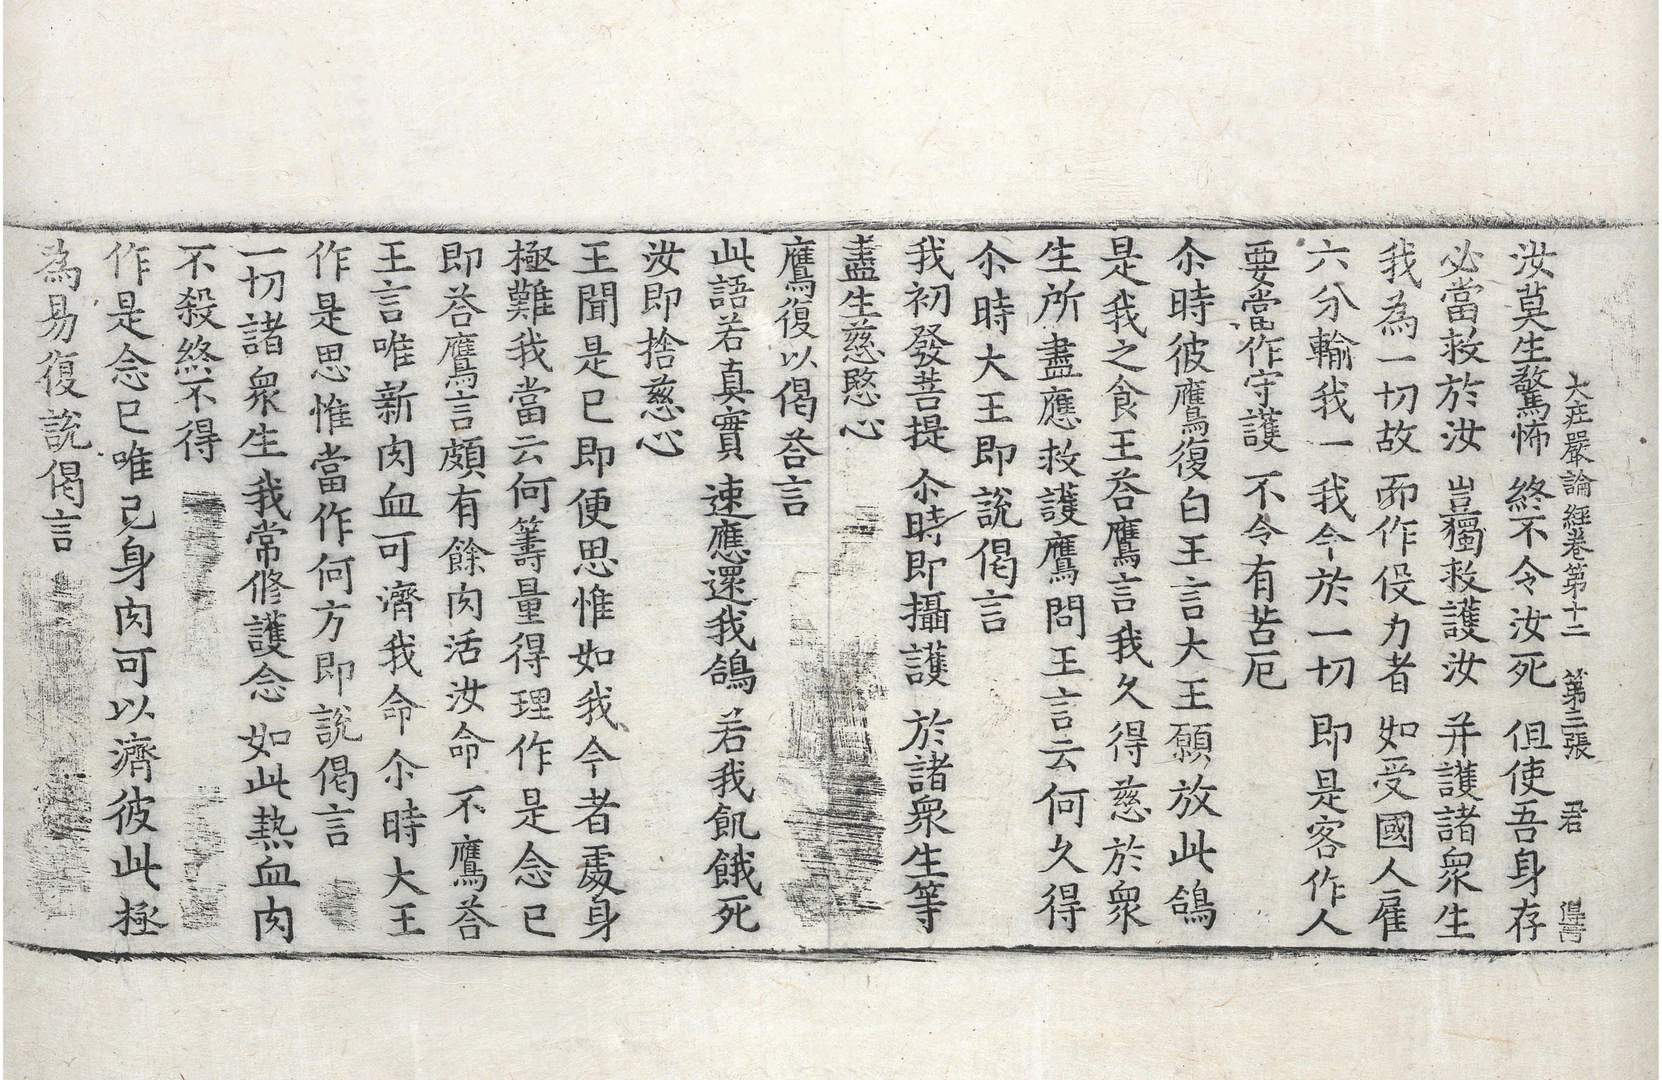 大莊嚴論經卷第十二　第三張　君
汝莫生驚怖　終不令汝死　但使吾身存
必當救於汝　豈獨救護汝　并護諸衆生
我為一切故　而作役力者　如受國人雇
六分輸我一　我今於一切　即是客作人
要當作守護　不令有苦厄
尒時彼鷹復白王言大王願放此鴿
是我之食王荅鷹言我久得慈於衆
生所盡應救護鷹問王言云何久得
尒時大王即說偈言
我初發菩提　尒時即攝護　於諸衆生等
盡生慈愍心
鷹復以偈荅言
此語若真實　速應還我鴿　若我飢餓死
汝即捨慈心
王聞是已即便思惟如我今者處身
極難我當云何籌量得理作是念已
即荅鷹言頗有餘肉活汝命不鷹荅
王言唯新肉血可濟我命尒時大王
作是思惟當作何方即說偈言
一切諸衆生　我常修護念　如此熱血肉
不殺終不得
作是念已唯己身肉可以濟彼此極
為易復說偈言